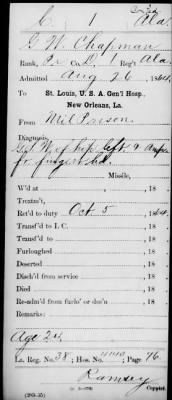 C 1 Ala.
G W Chapman
Rank, Pr Co. D, 1 Reg't Ala.
Admitted Aug 26, 1864.
To St. Louis, U. S. A. Gen'l Hosp.,
New Orleans, La.
From Mil Prison.
Diagnosis,
G.s. W. of hip left &
fr finger
Missile,
W'd at , 18
Treatm't,
Ret'd to duty Oct 5, 1864.
Transf'd to I. C. , 18
Transf'd to , 18
Furloughed , 18
Deserted , 18
Disch'd from service , 18
Died , 18
Re-adm'd from furlo' or des'n , 18
Remarks:
Age 24.
La. Reg. No. 38; Hos. No. ; Page 76.
Ramsey
Copyist.